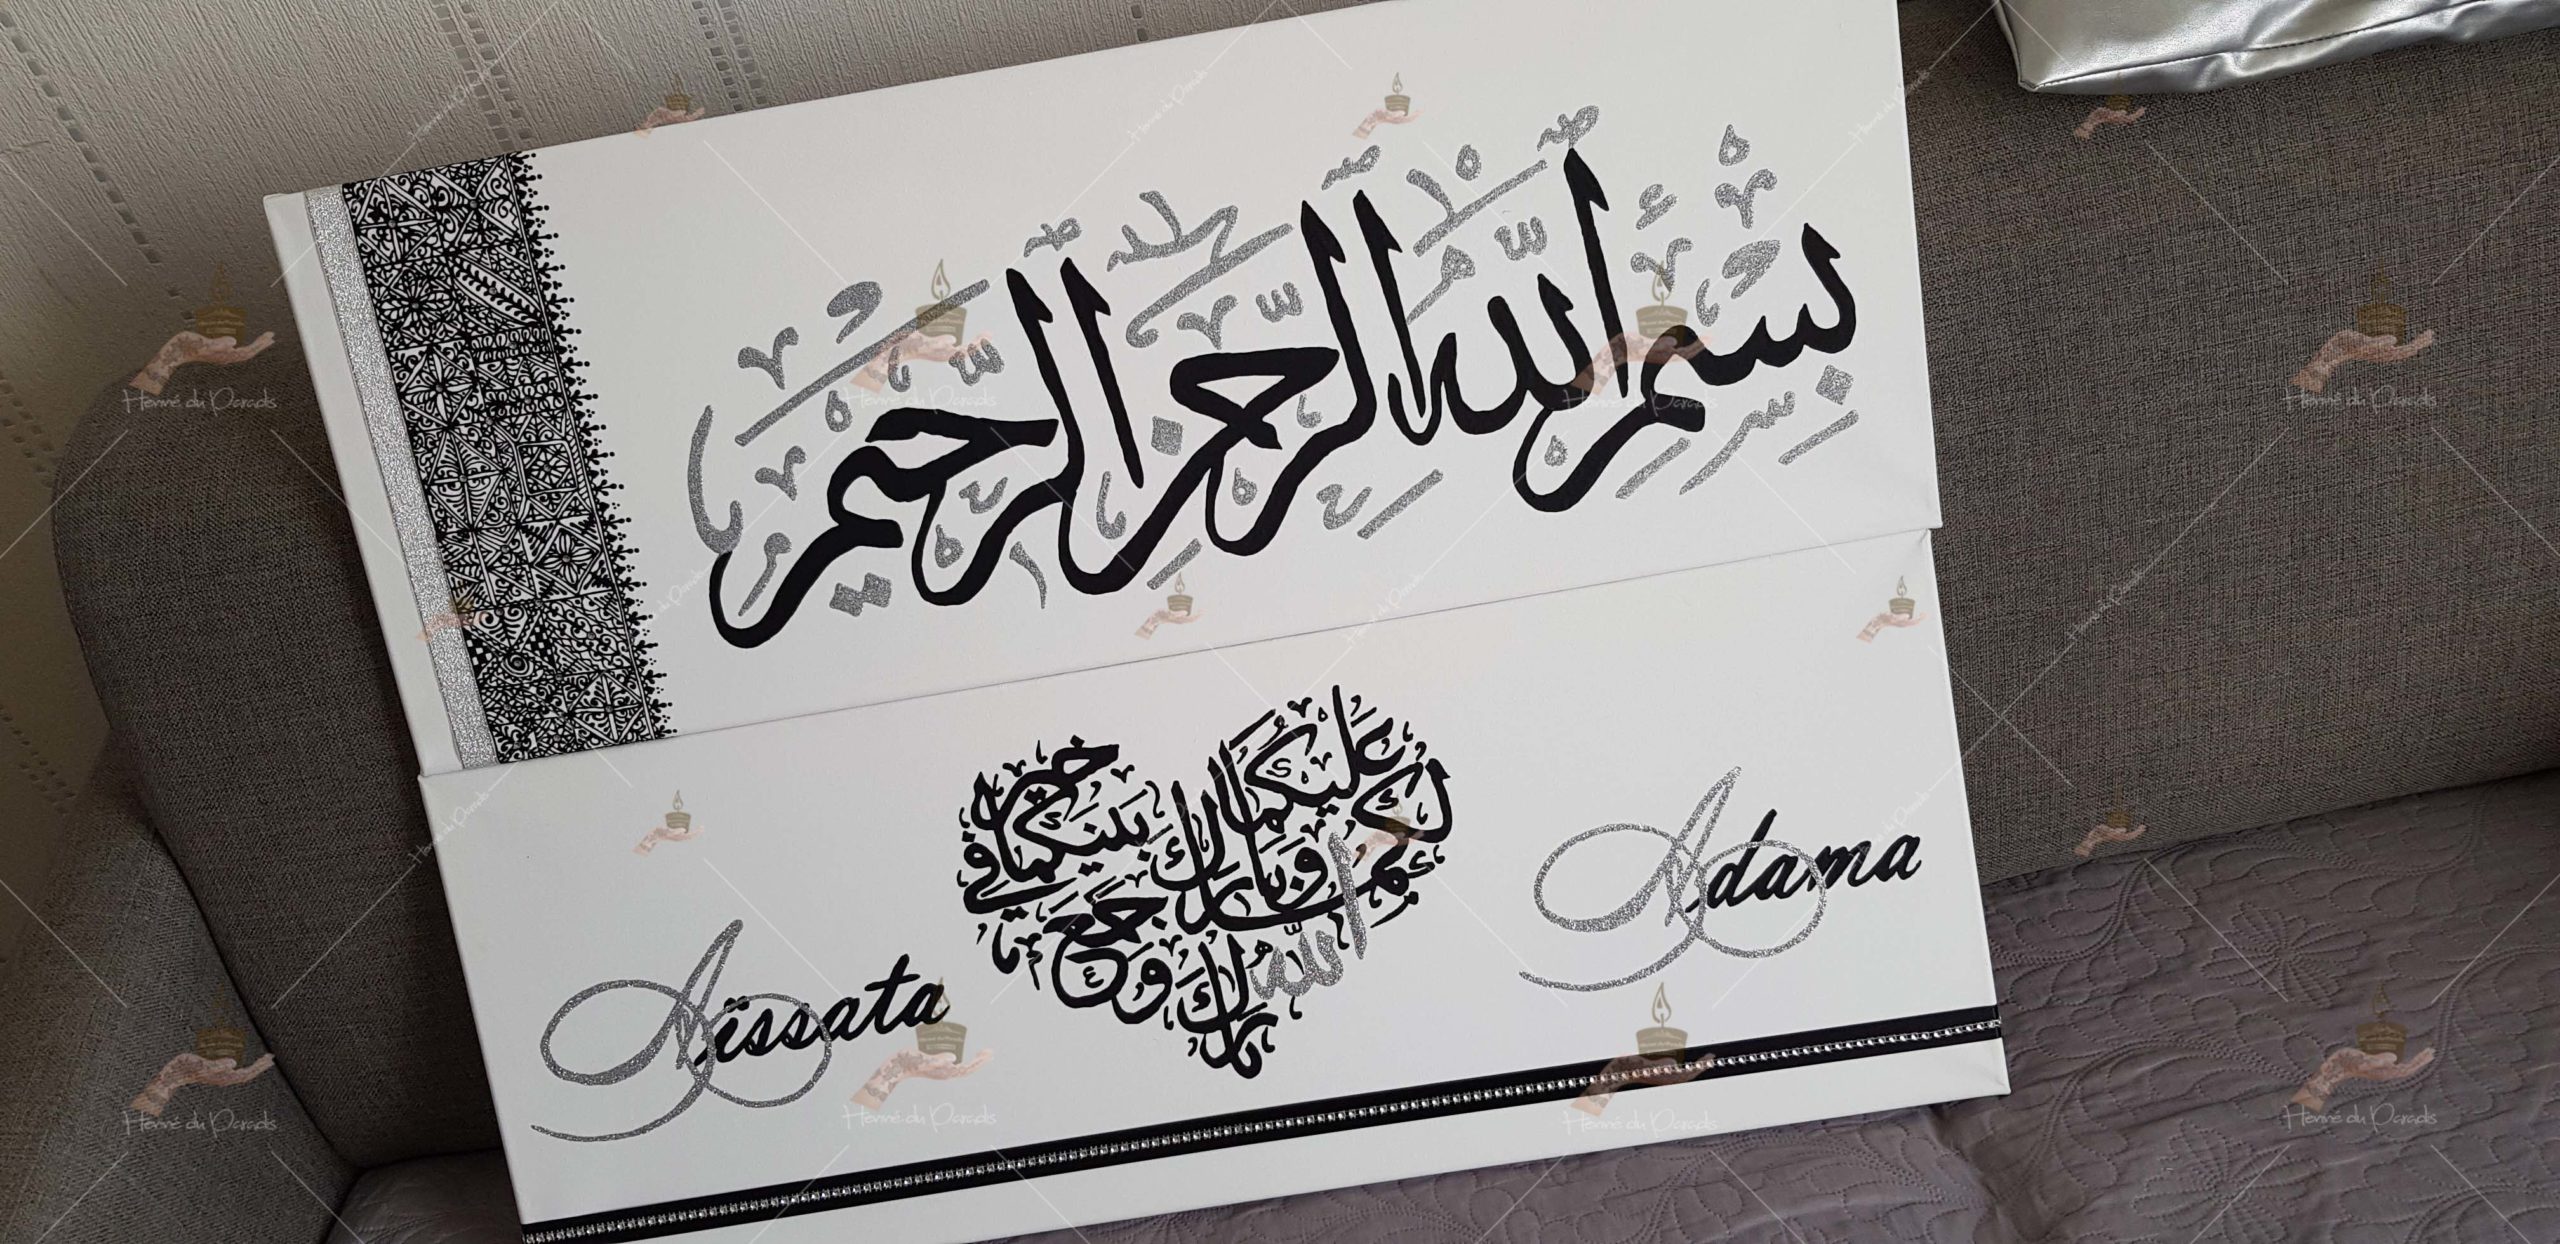 بِسْمِ اللَّهِ الرَّحْمَنِ الرَّحِيمِ
بارك الله لكما وبارك عليكما وجمع بينكما في خير
Aïssata
Adama
Henné du Paradis